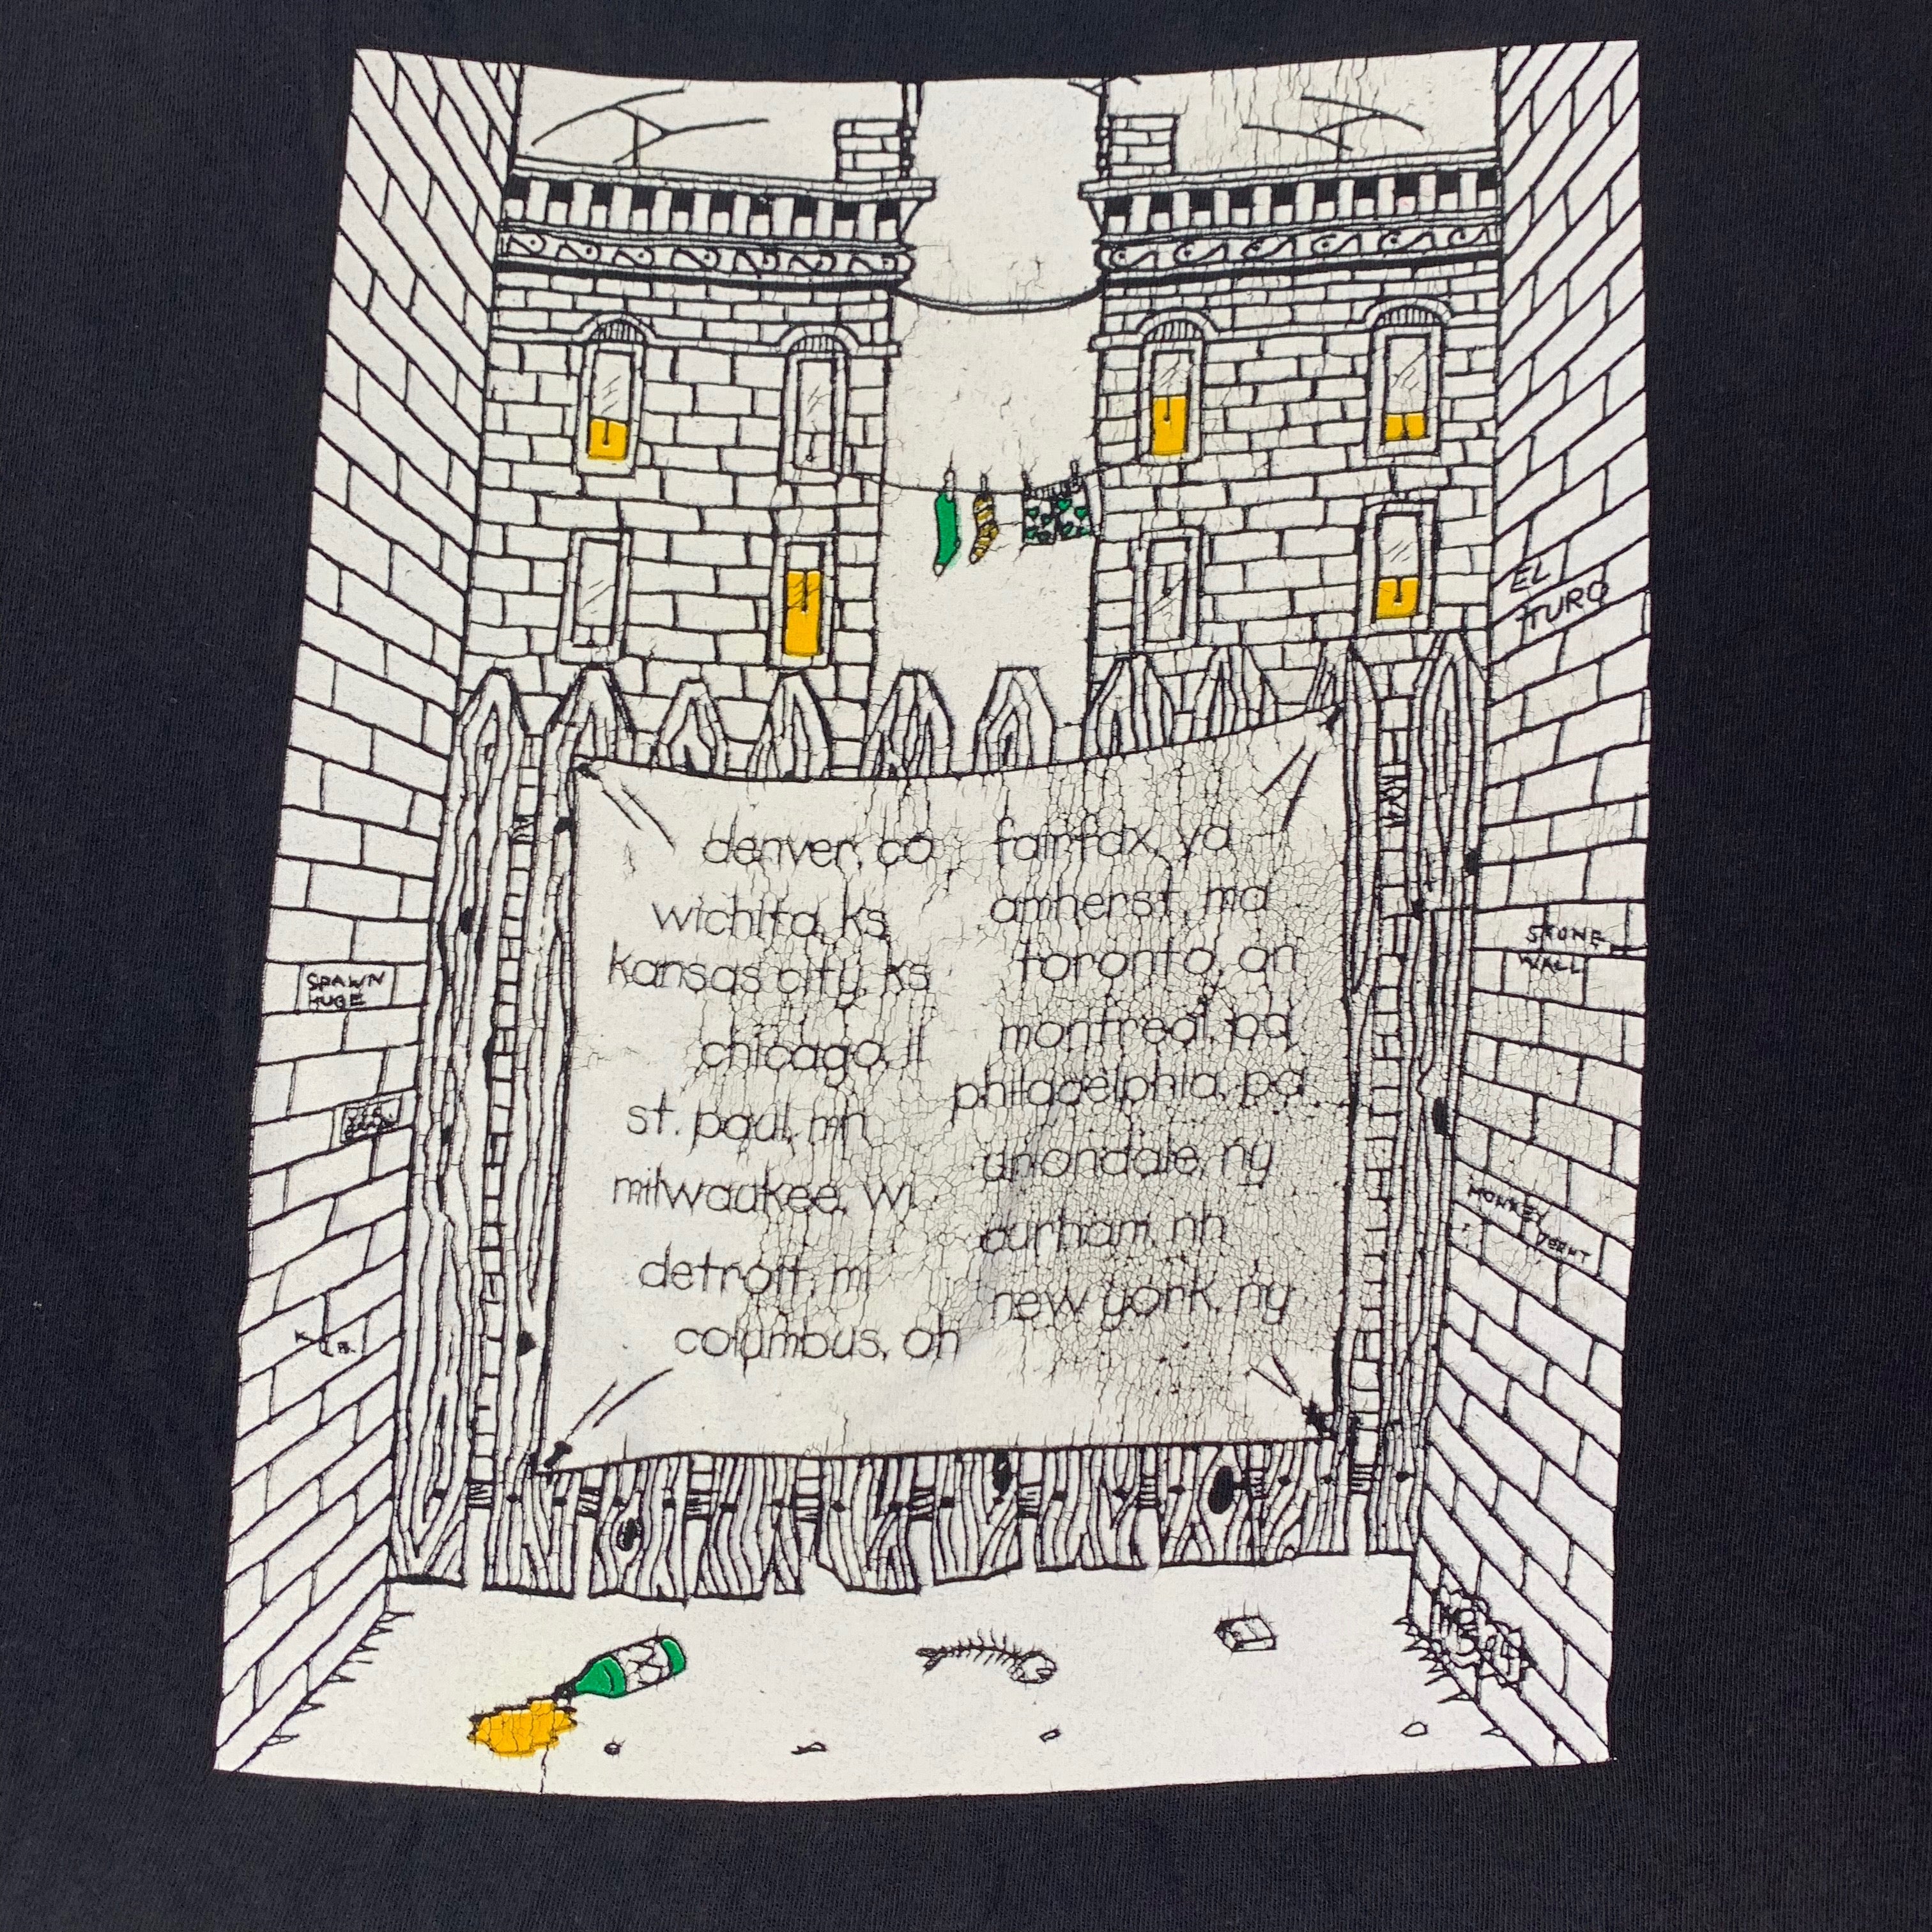 EL
TURO
denver, co
wichita, ks
kansas city, ks
chicago, il
st. paul, mn
milwaukee, wi
detroit, mi
columbus, oh
fairfax, va
amherst, ma
toronto, on
montreal, pq
philadelphia, pa
uniondale, ny
durham, nh
new york, ny
SPAWN
HUGE
STONE
WALL
MONKEY